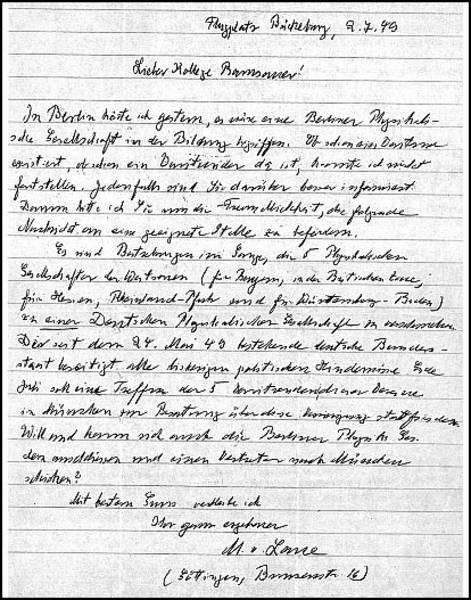 Flugplatz Bückeburg, 2.7.49
Lieber Kollege Ramsauer!
In Berlin hörte ich gestern, es wäre eine Berliner Physikali-
sche Gesellschaft in der Bildung begriffen. Ob schon ein
existiert, ob schon ein Vorsitzender da ist, konnte ich nicht
feststellen. Jedenfalls sind Sie darüber besser informiert.
Darum bitte ich Sie um die Freundlichkeit, die folgende
Nachricht an eine geeignete Stelle zu befördern.
Es sind Bestrebungen im Gange, die 5 Physikalischen
Gesellschaften der Westzonen (für Bayern, in der Britischen Zone,
für Hessen, Rheinland-Pfalz und für Württemberg-Baden)
zu einer Deutschen Physikalischen Gesellschaft zu verschmelzen.
Der seit dem 24. Mai 49 bestehende deutsche Bundes-
staat beseitigt alle bisherigen politischen Hindernisse. Ende
Juli soll ein Treffen der 5 Vorsitzenden dieser Vereine
in München zur Beratung über diese Vereinigung stattfinden.
Will und kann sich auch die Berliner Physik. Ges.
dem anschliessen und einen Vertreter nach München
schicken?
Mit bestem Gruss verbleibe ich
Ihr ganz ergebener
M. v. Laue
(Göttingen, Bunsenstr. 16)